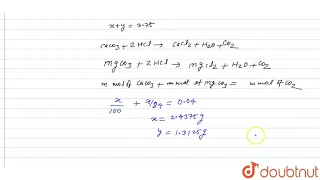 x+y = 3.75
CaCO3 + 2HCl → CaCl2 + H2O + CO2
MgCO3 + 2HCl → MgCl2 + H2O + CO2
m mol of CaCO3 + m mol of MgCO3 = m mol of CO2
x/100 + y/84 = 0.04
x = 2.4375g
y = 1.3125g
doubtnut